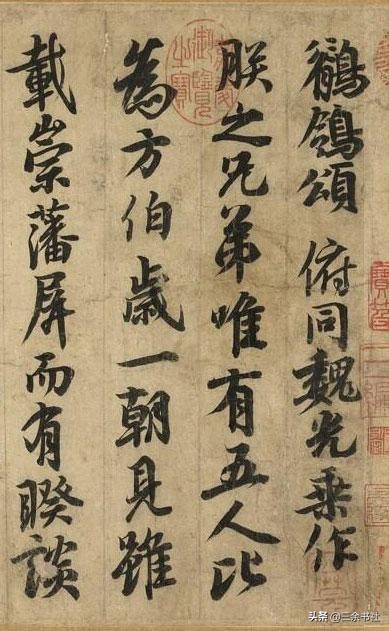 鶺鴒頌 俯同魏光乗作
朕之兄弟唯有五人比
為方伯歳一朝見雖
載崇藩屏而有睽談
头条 @三余书社